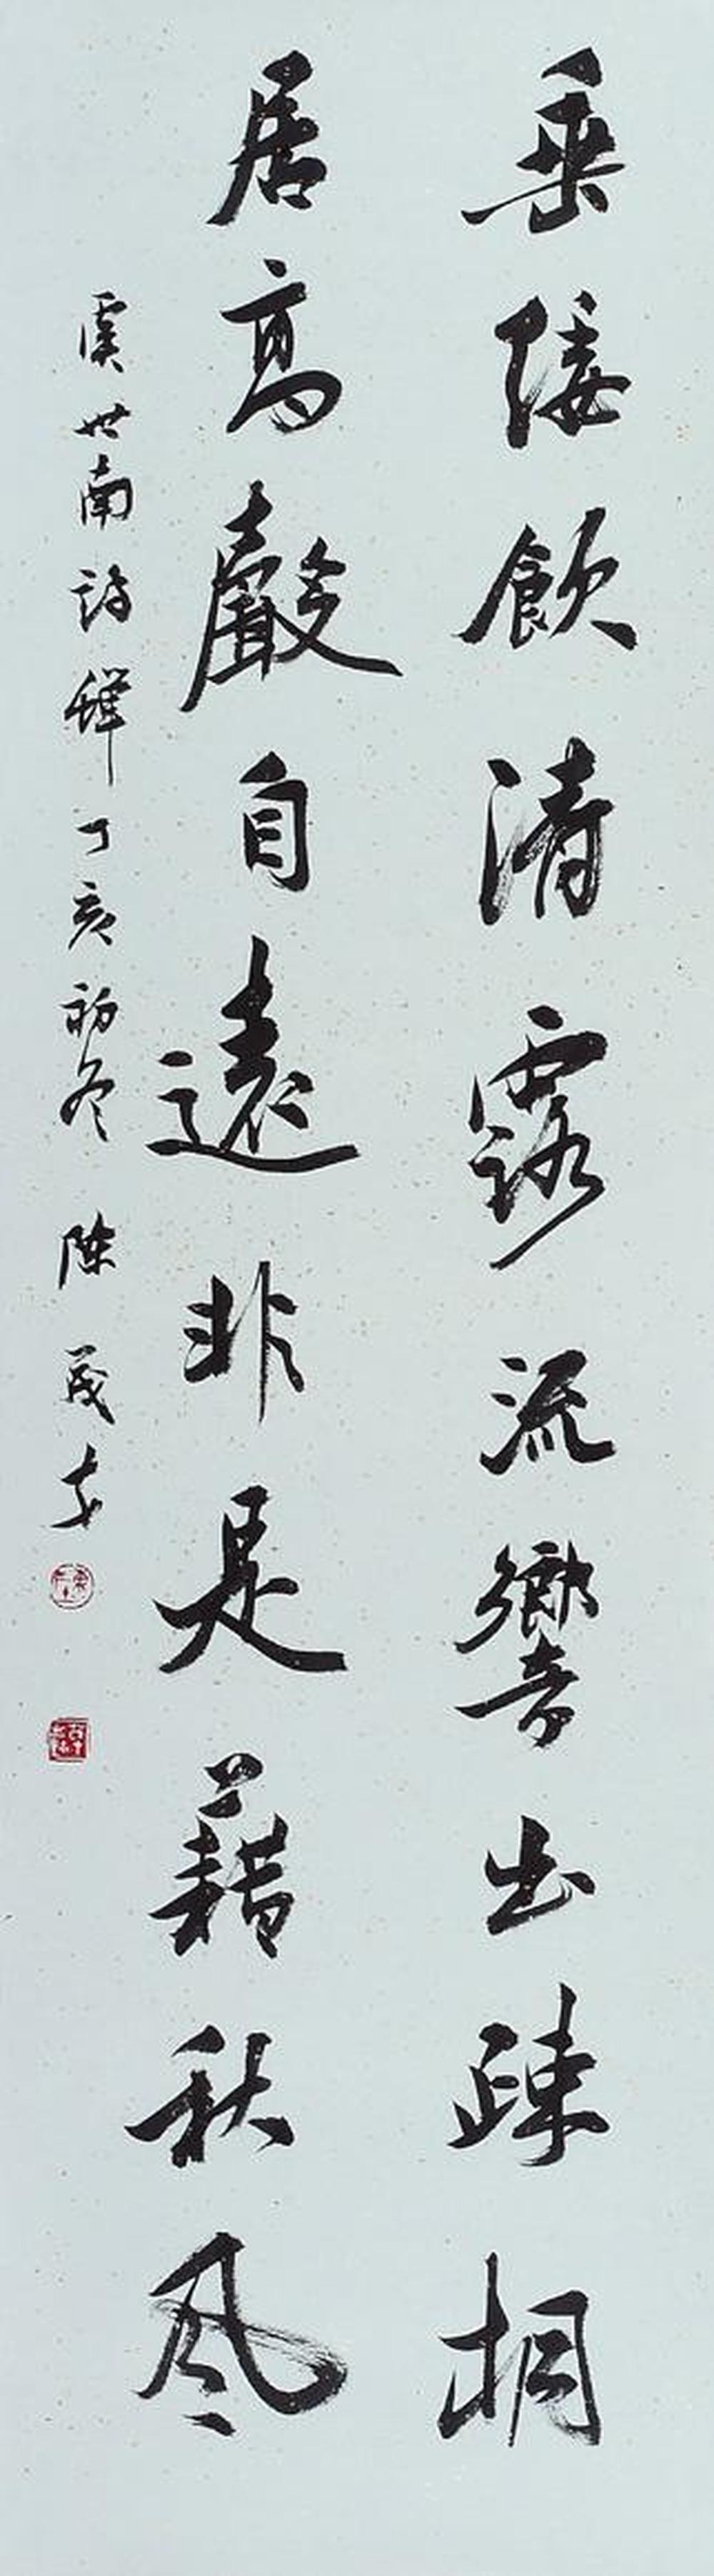 垂緌飲清露流響出疎桐
居高聲自遠非是藉秋風
虞世南詩蟬丁亥初冬陳